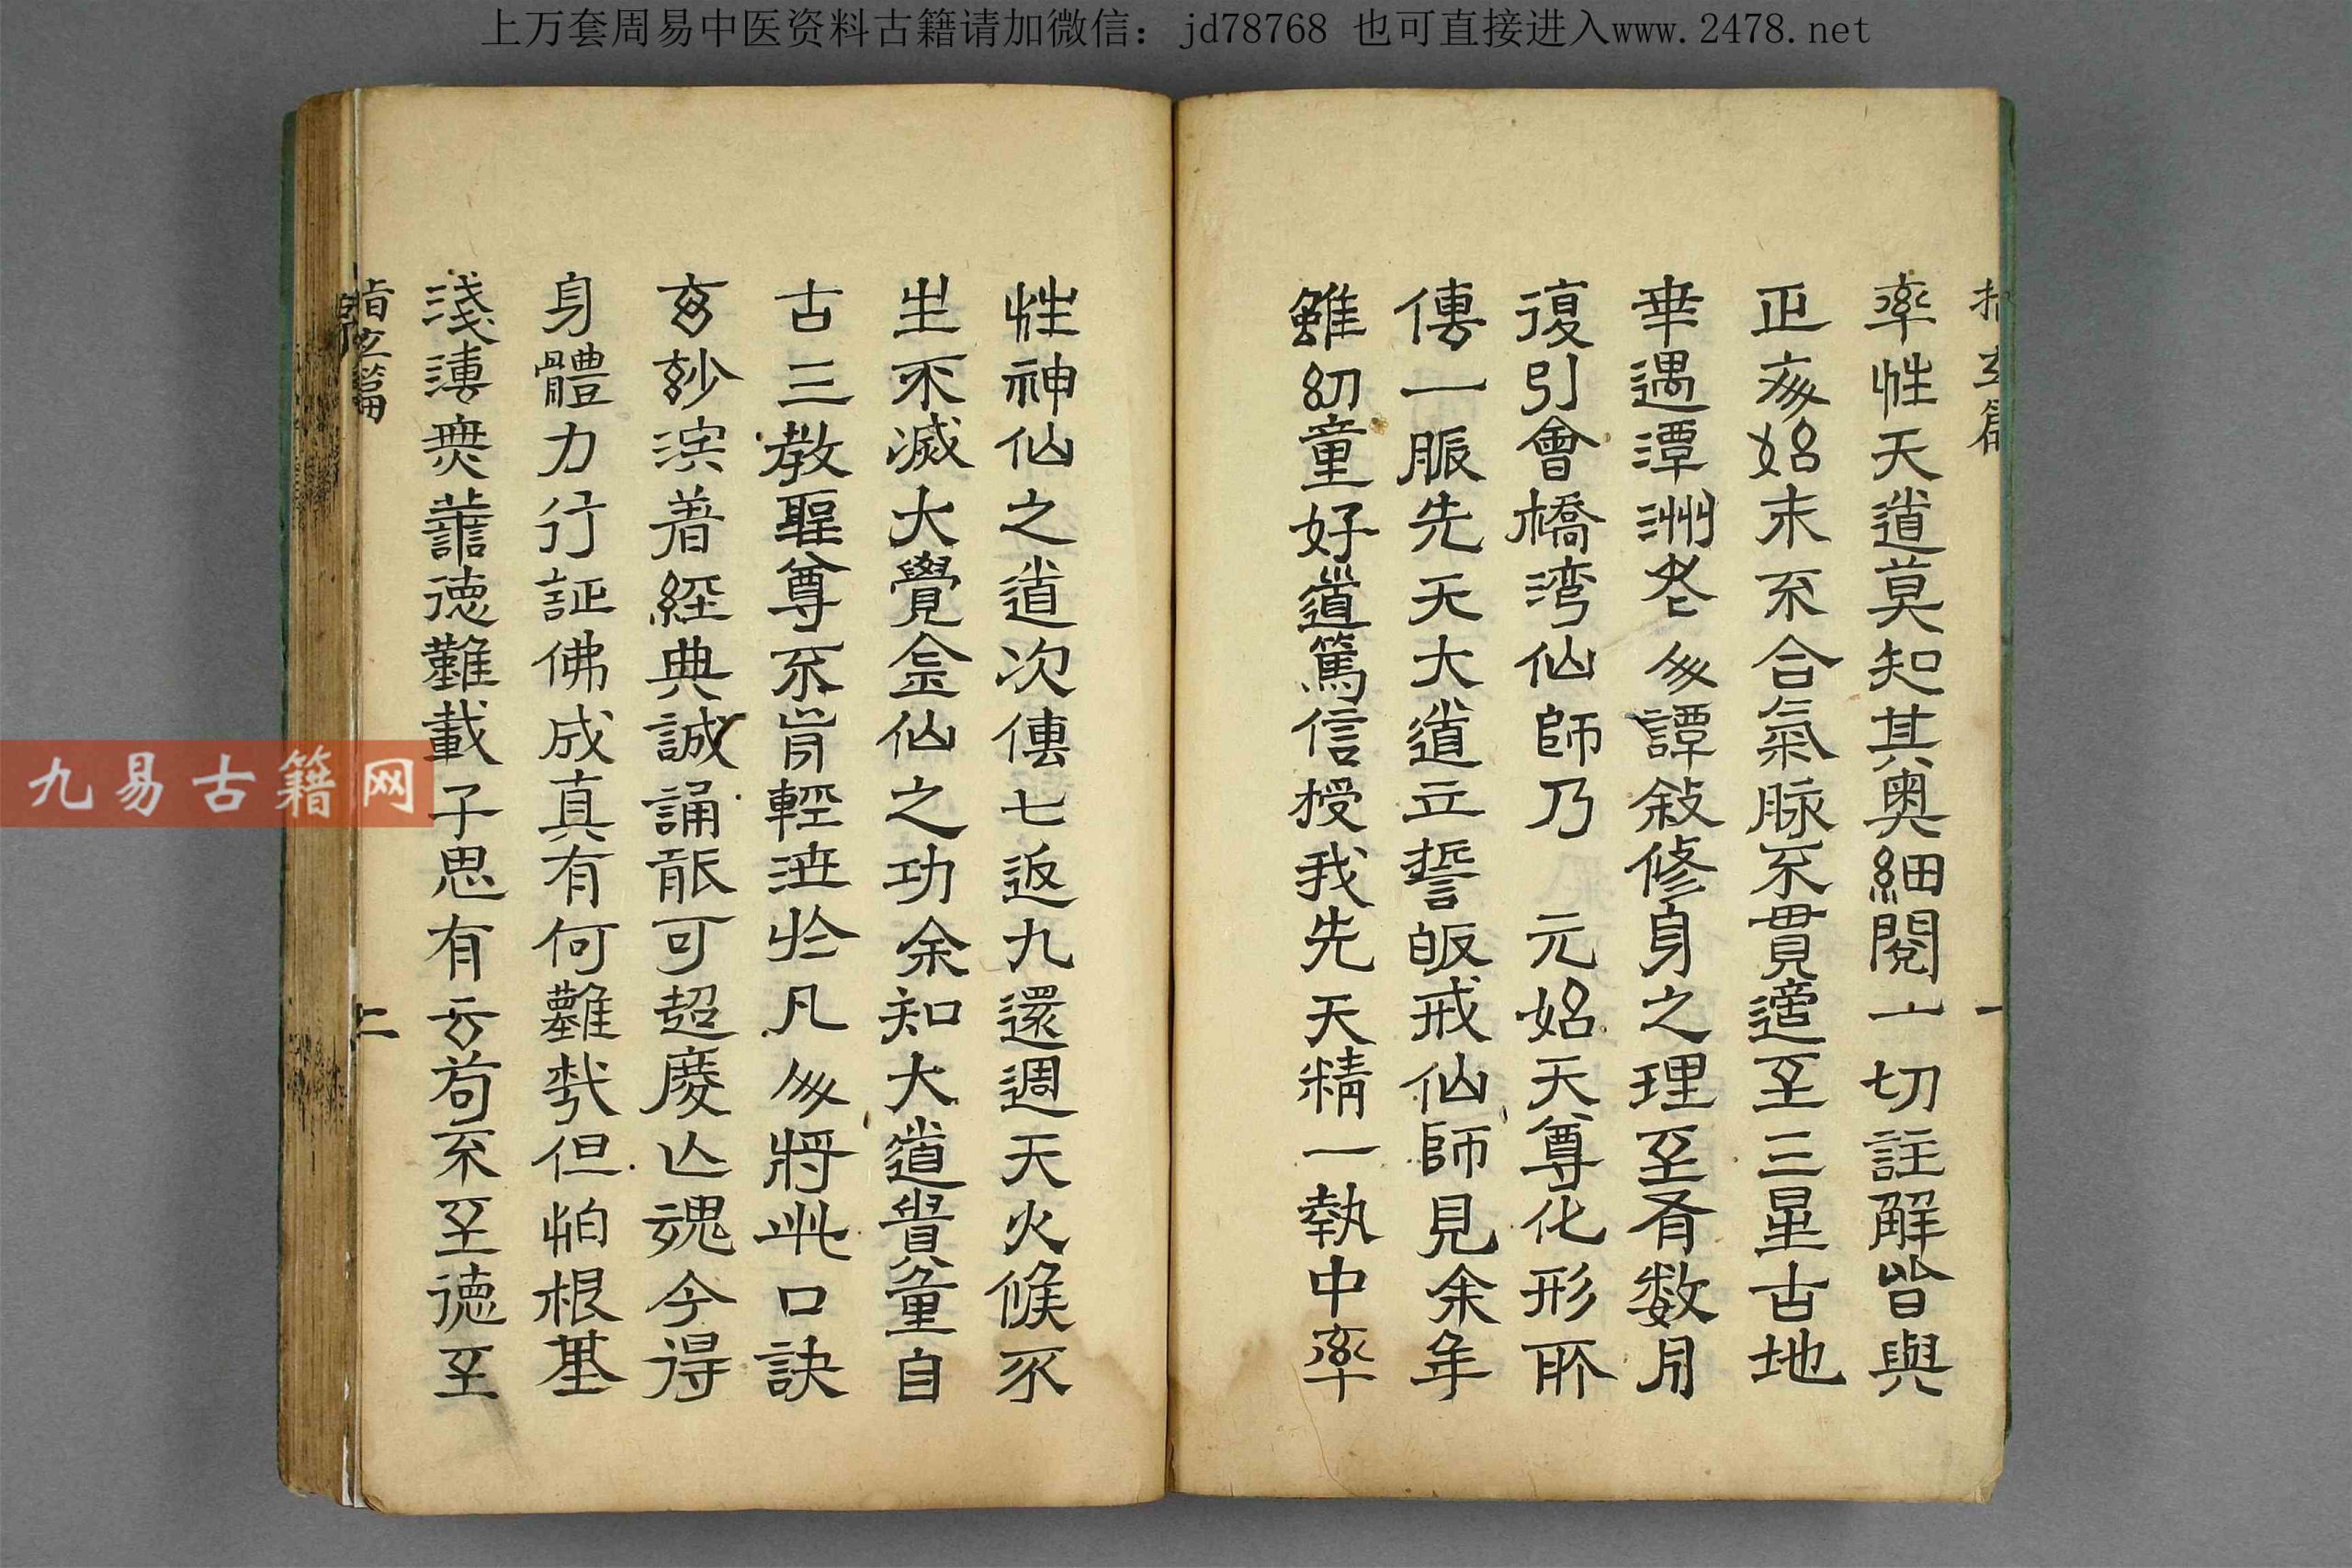 上万套周易中医资料古籍请加微信：jd78768 也可直接进入www.2478.net
指玄篇
一
率性天道莫知其奥細閱一切註解皆與
正亥始末不合氣脉不貫適至三星古地
幸遇潭洲老人譚敍修身之理至有数月
復引會橋湾仙師乃 元始天尊化形所
傳一脈先天大道立誓皈戒仙師見余年
雖幼童好道篤信授我先天精一執中率
性神仙之道次傳七返九還週天火候不
生不滅大覺金仙之功余知大道貴重自
古三教聖尊不肯輕泄於凡人將此口訣
玄妙深着經典誠誦能可超慶亡魂今得
身體力行証佛成真有何難哉但怕根基
淺薄無讓德難載子思有云苟不至德至
指玄篇
二
九易古籍网